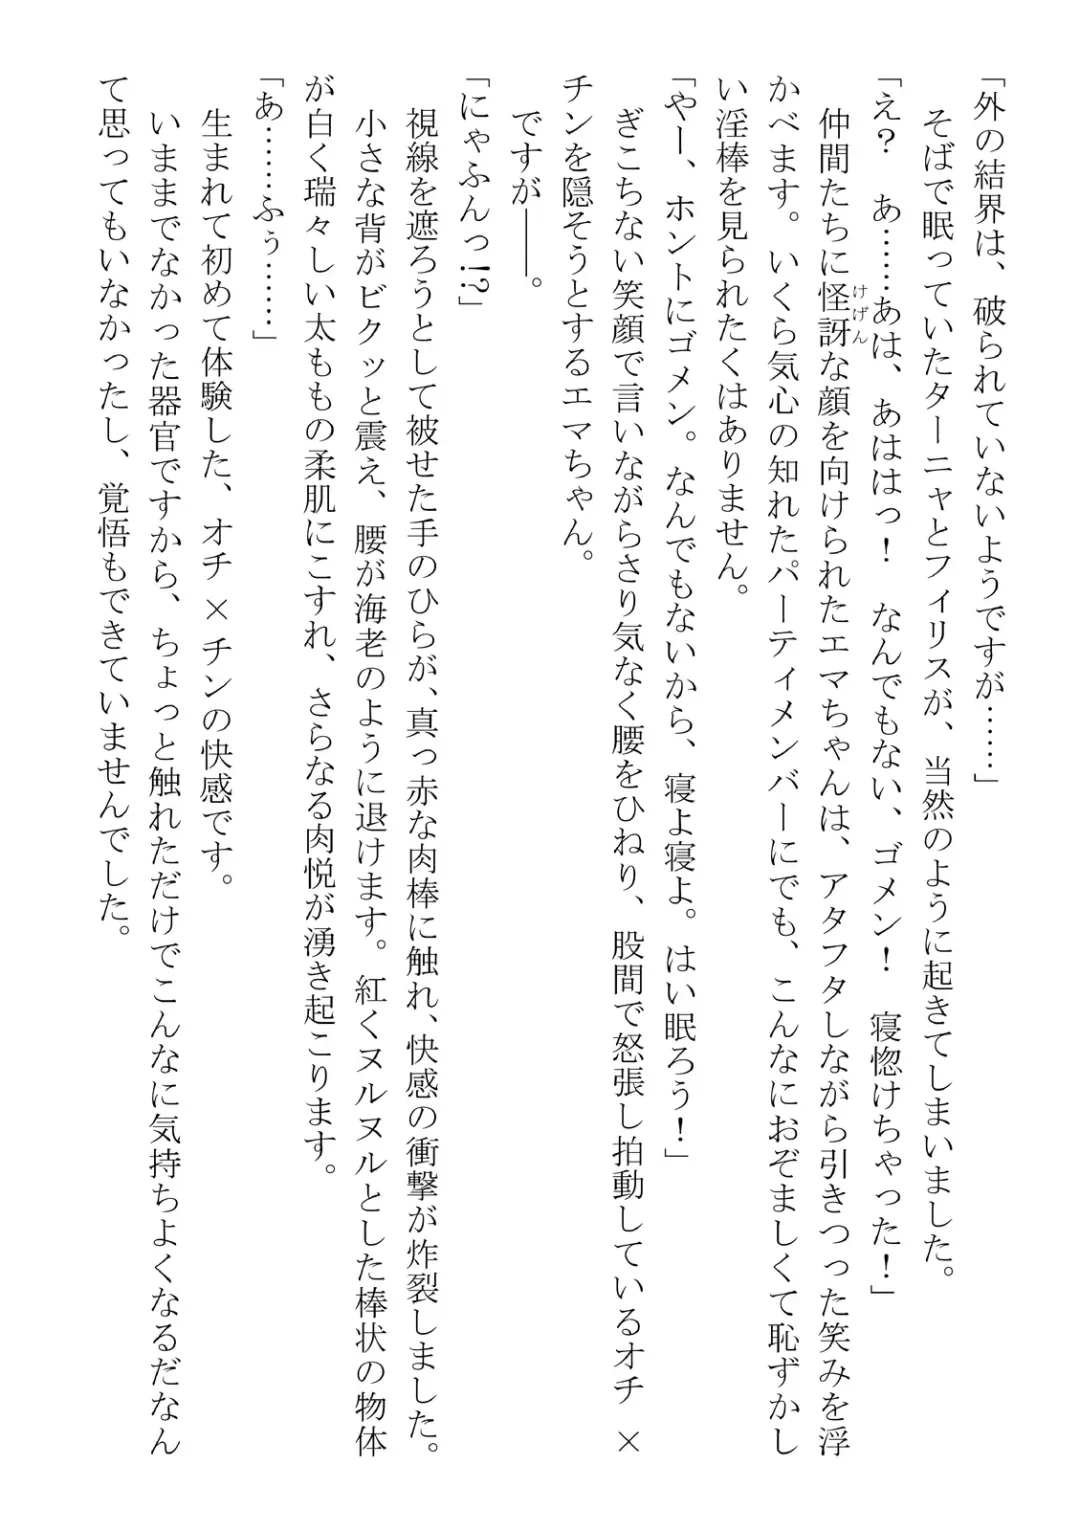 「外の結界は、破られていないようですが……」
そばで眠っていたターニャとフィリスが、当然のように起きてしまいました。
「え？　あ……あは、あははっ！　なんでもない、ゴメン！　寝惚けちゃった！」
けげん
仲間たちに怪訝な顔を向けられたエマちゃんは、アタフタしながら引きつった笑みを浮
かべます。いくら気心の知れたパーティメンバーにでも、こんなにおぞましくて恥ずかし
い淫棒を見られたくはありません。
「やー、ホントにゴメン。なんでもないから、寝よ寝よ。はい眠ろう！」
ぎこちない笑顔で言いながらさり気なく腰をひねり、股間で怒張し拍動しているオチ×
チンを隠そうとするエマちゃん。
ですが――。
「にゃふんっ!?」
視線を遮ろうとして被せた手のひらが、真っ赤な肉棒に触れ、快感の衝撃が炸裂しました。
小さな背がビクッと震え、腰が海老のように退けます。紅くヌルヌルとした棒状の物体
が白く瑞々しい太ももの柔肌にこすれ、さらなる肉悦が湧き起こります。
「あ……ふぅ……」
生まれて初めて体験した、オチ×チンの快感です。
いままでなかった器官ですから、ちょっと触れただけでこんなに気持ちよくなるだなん
て思ってもいなかったし、覚悟もできていませんでした。